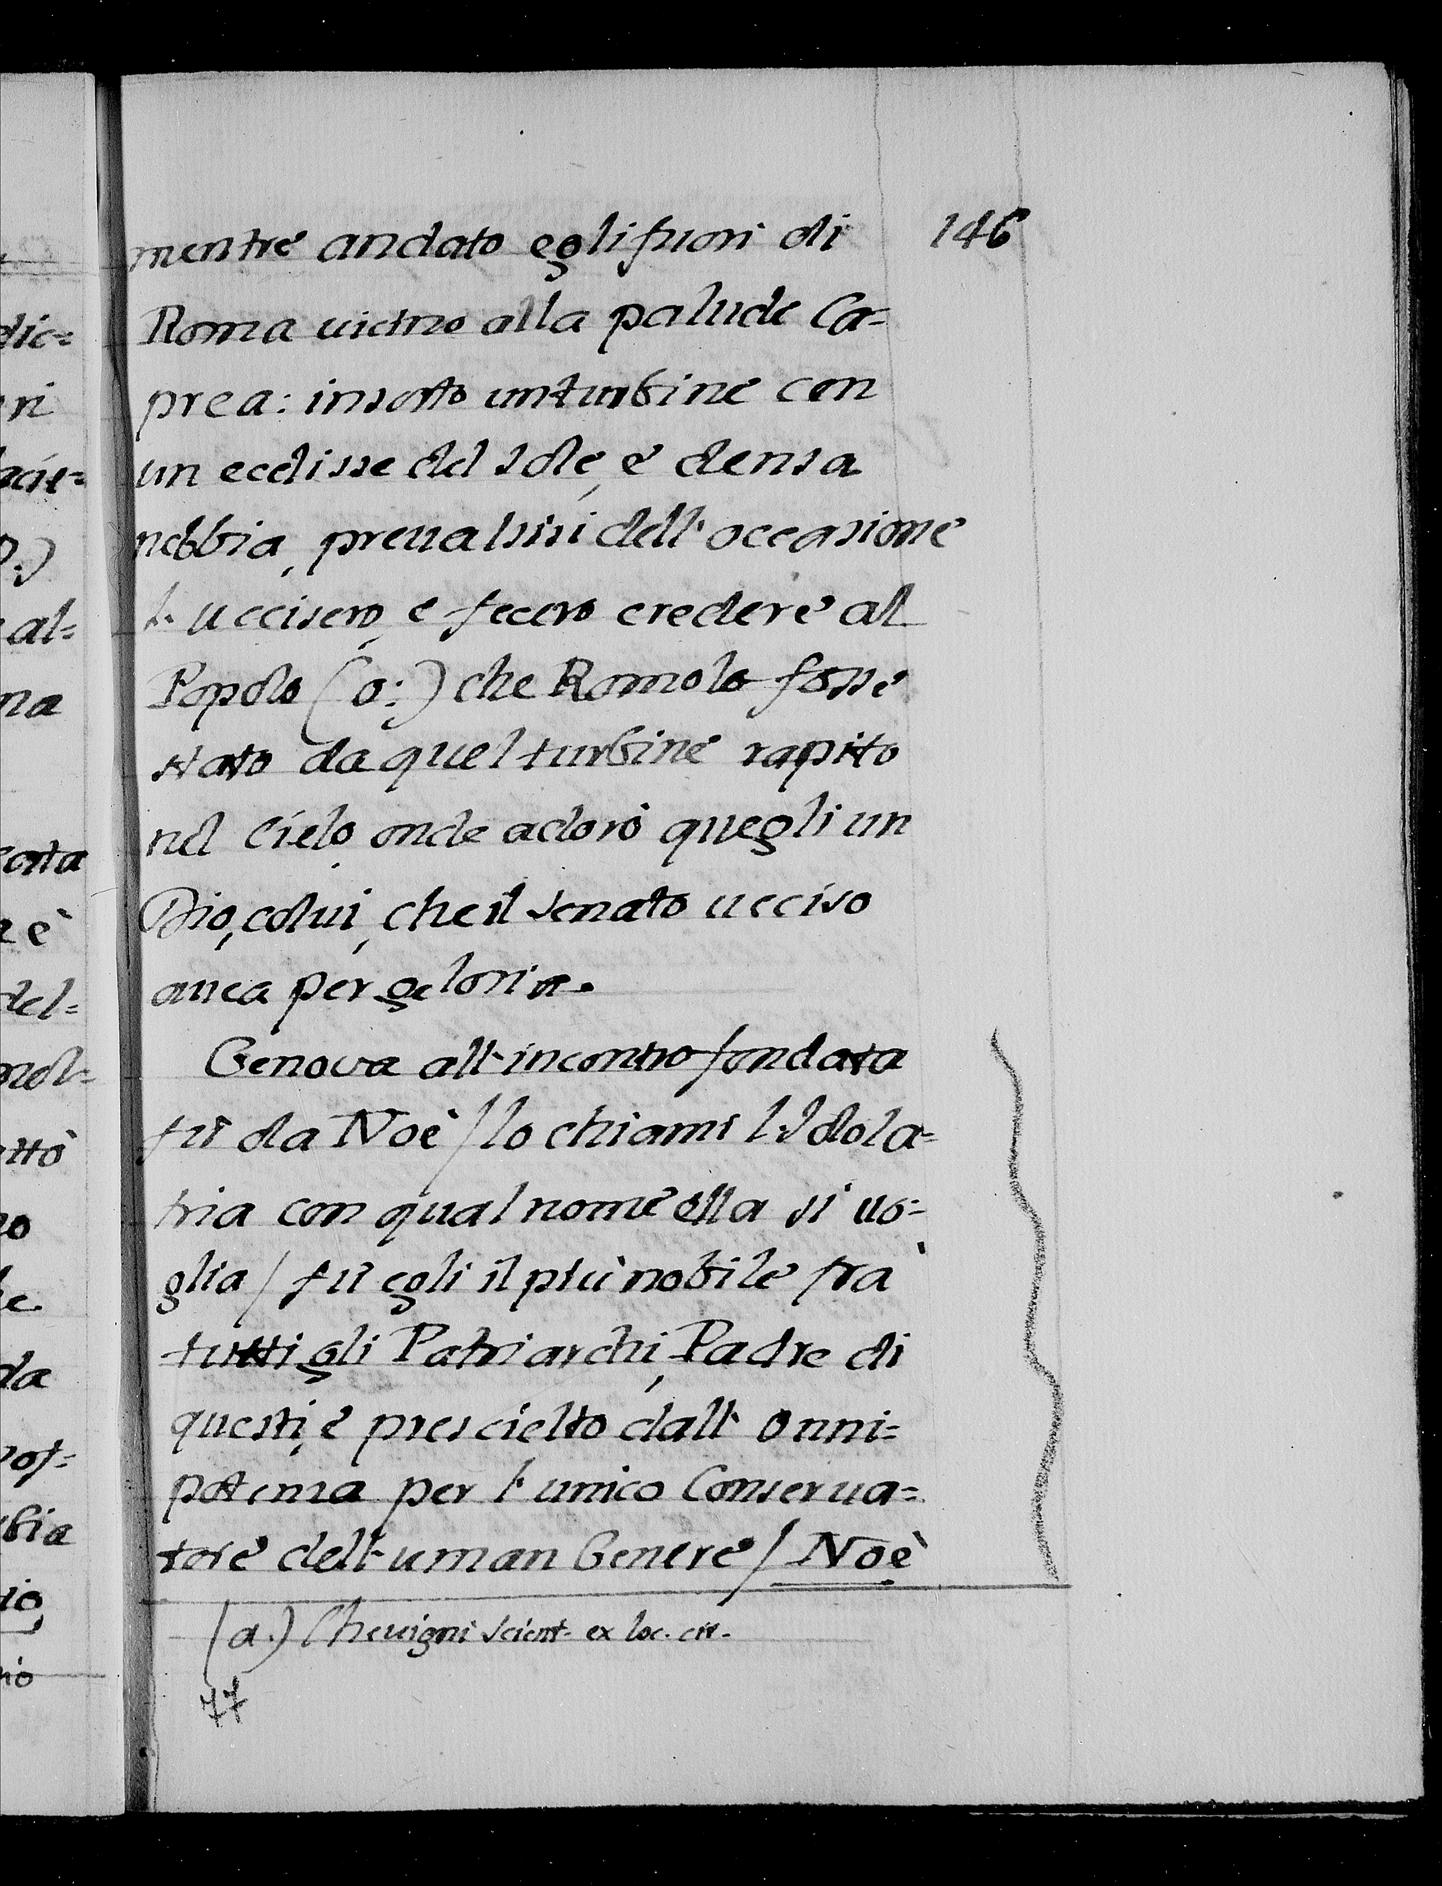 146
mentre andato egli fuori di
Roma uicino alla palude Ca=
prea: insorto un turbine con
un ecclisse del Sole, e densa
nebbia, preualsisi dell' occasione
l' uccisero, e fecero credere al
Popolo (a:) che Romolo fosse
stato da quel turbine rapito
nel Cielo, onde adorò quegli un
Dio, colui, che il Senato ucciso
auea per gelosia.
Genova all' incontro fondata
fù da Noè / lo chiami l' Idola=
tria con qual nome ella si uo=
glia / fù egli il più nobile frà
tutti gli Patriarchi, Padre di
questi, e prescielto dall' Onni=
potenza per l' unico Conserua=
tore dell' uman Genere / Noè
(a.) Cheuigni Scient. ex loc. cit.
77